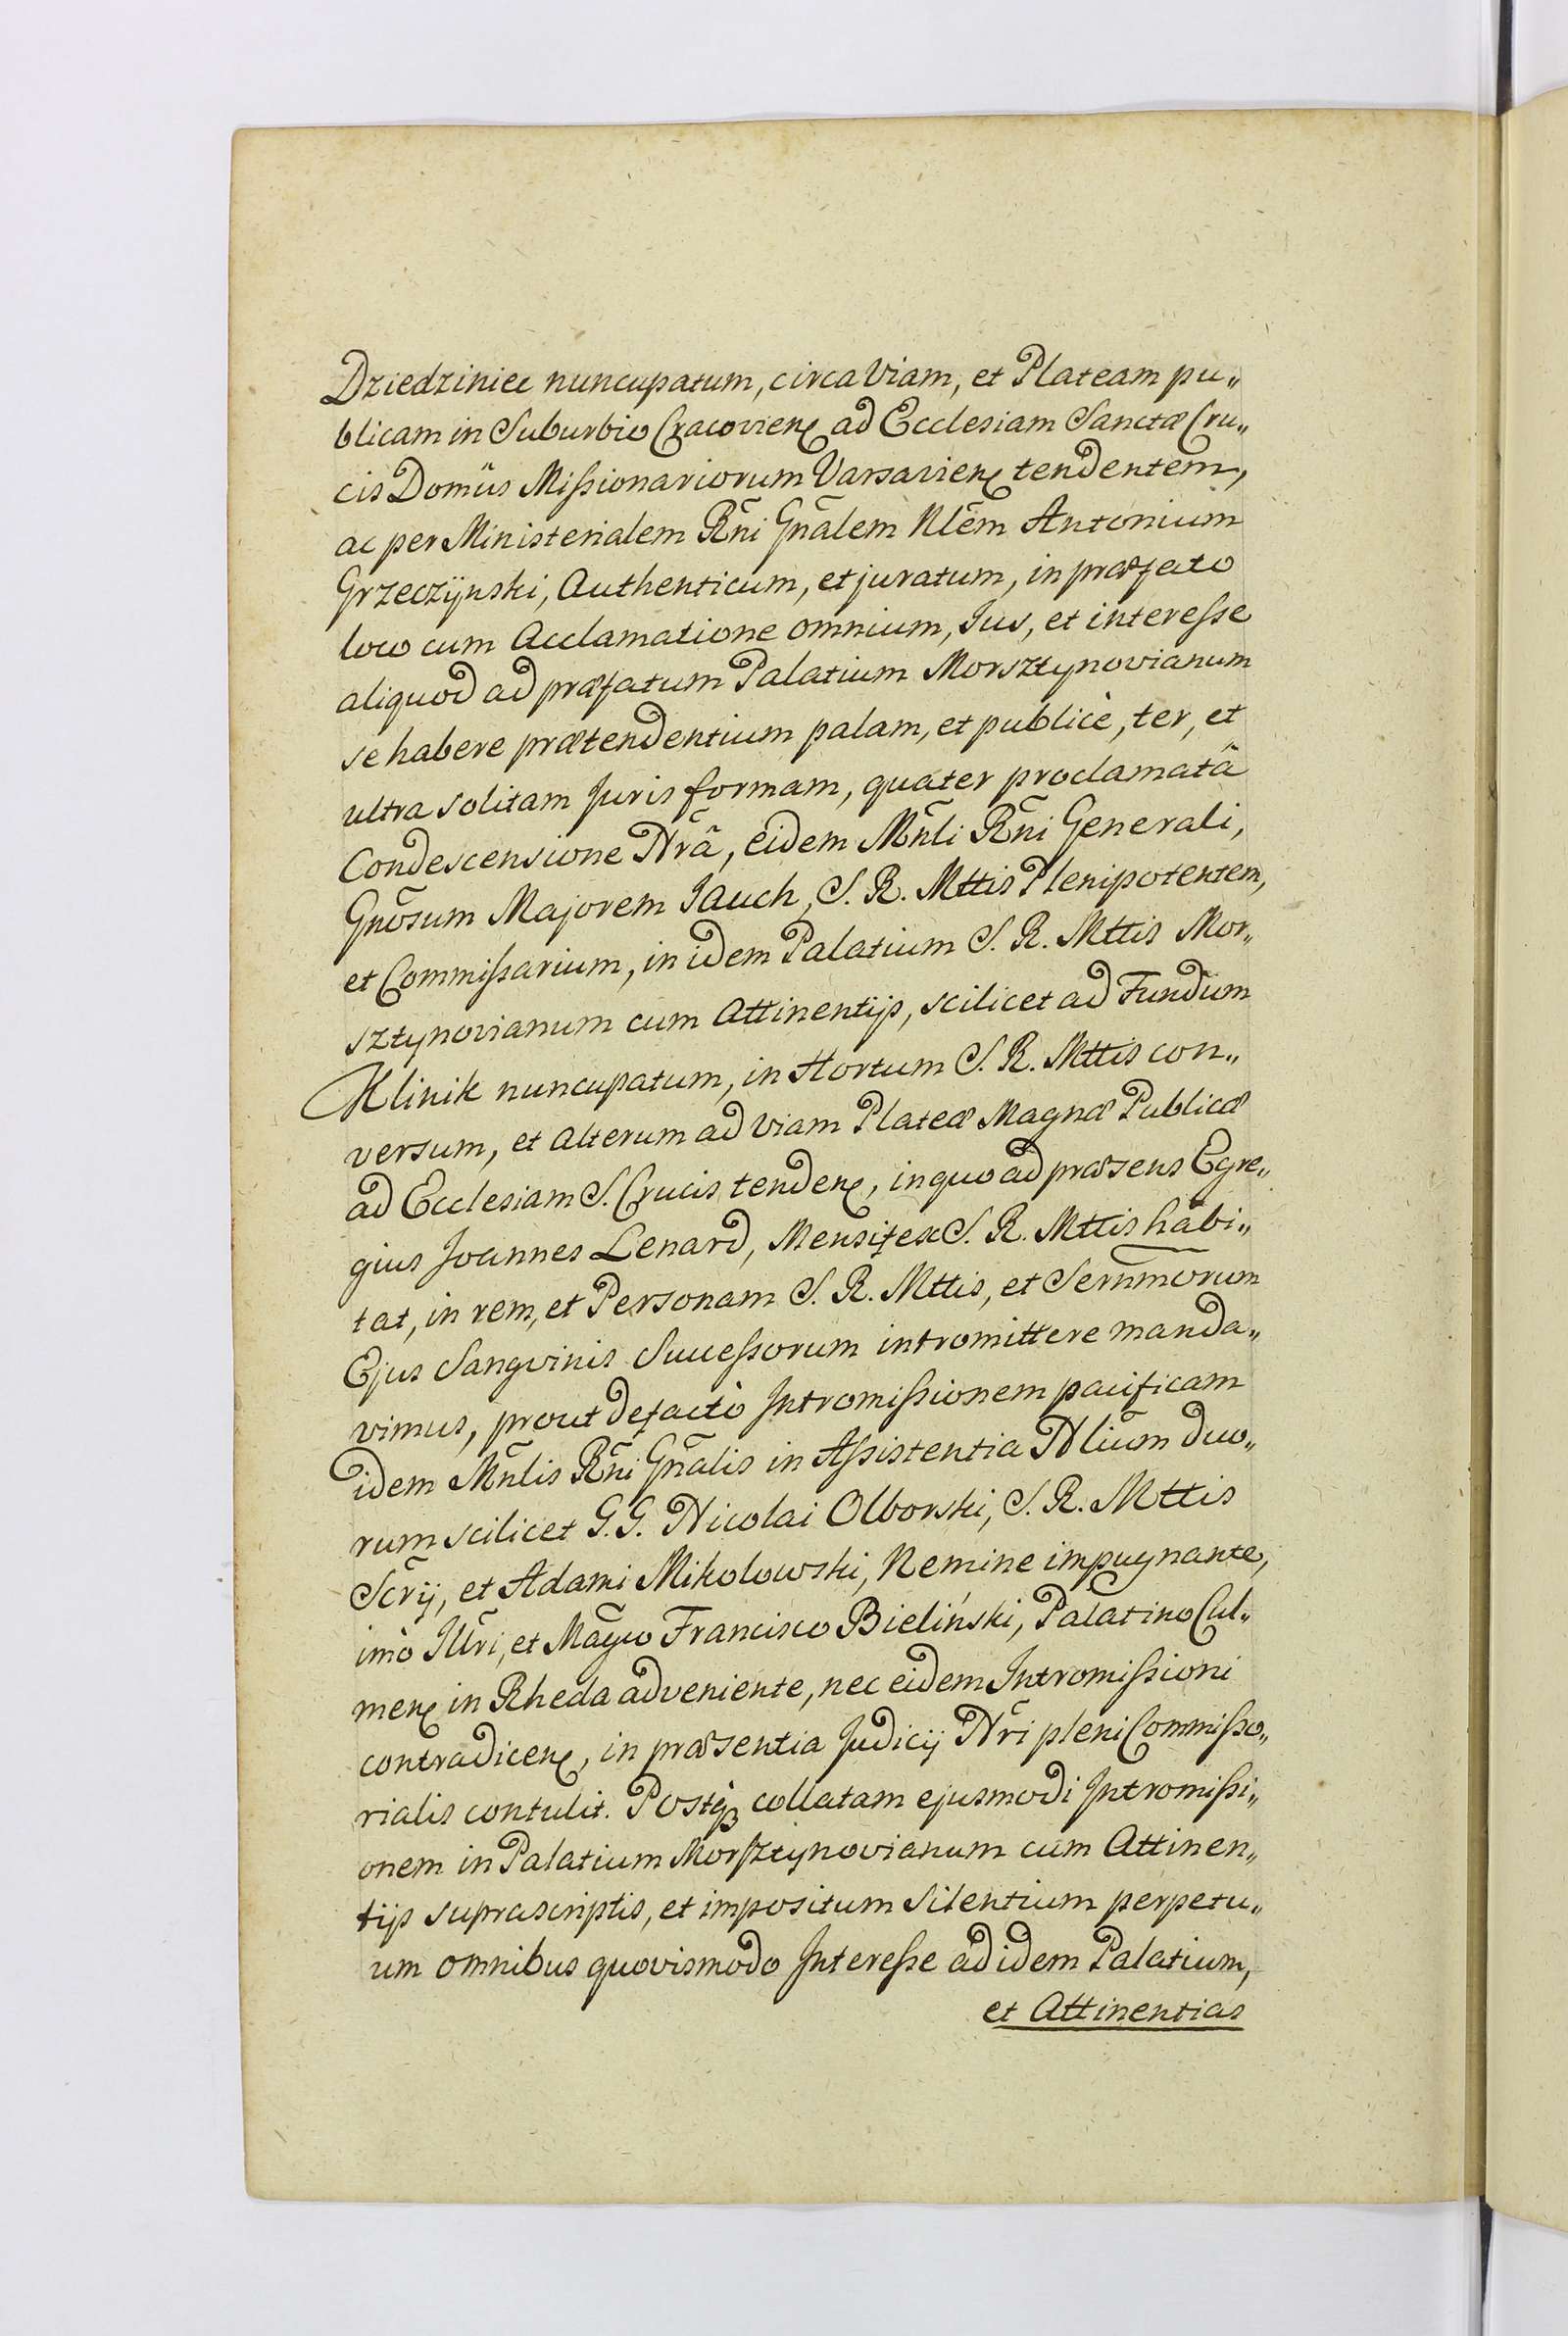 Dziedziniec nuncupatum, circa Viam, et Plateam pu„
blicam in Suburbio Cracovienꝭ ad Ecclesiam Sanctæ Cru„
cis Domûs Mißionariorum Varsavienꝭ tendentem,
ac per Ministerialem Rñi Gñalem Nlẽm Antonium
Grzeczÿnski, Authenticum, et juratum, in præfato
loco cum Acclamatione omnium, Jus, et intereße
aliquod ad præfatum Palatium Morsztynovianum
se habere prætendentium palam, et publicè, ter, et
ultra solitam Juris formam, quater proclamatâ
Condescensione Nr̃â, eidem Mñli Rñi Generali,
Gnõsum Majorem Jauch, S. R. Mttis Plenipotentem,
et Commißarium, in idem Palatium S. R. Mttis Mor„
sztynovianum cum Attinentijs, scilicet ad Fundum
Klinik nuncupatum, in Hortum S. R. Mttis con„
versum, et alterum ad viam Plateæ Magnæ Publicæ
ad Ecclesiam S. Crucis tendenꝭ, in quo ad præsens Egre„
gius Joannes Lenard, Mensifex S. R. Mttis habi„
tat, in rem, et Personam S. R. Mttis, et Sernmorum
Ejus Sangvinis Succeßorum intromittere manda„
vimus, prout de facto Intromißionem pacificam
idem Mñlis Rñi Gñalis in Aßistentia Nliũm duo„
rum scilicet G. G. Nicolai Olborski, S. R. Mttis
Scr̃ij, et Adami Mikolowski, Nemine impugnante,
imò Illr̃i, et Mag̃co Francisco Bieliński, Palatino Cul„
menꝭ in Rheda adveniente, nec eidem Intromißioni
contradicenꝭ, in præsentia Judicij Nr̃i pleni Commißo„
rialis contulit. Postqꝫ collatam ejusmodi Intromißi„
onem in Palatium Morsztynovianum cum Attinen„
tijs suprascriptis, et impositum Silentium perpetu„
um omnibus quovismodo Intereße ad idem Palatium,
et Attinentias